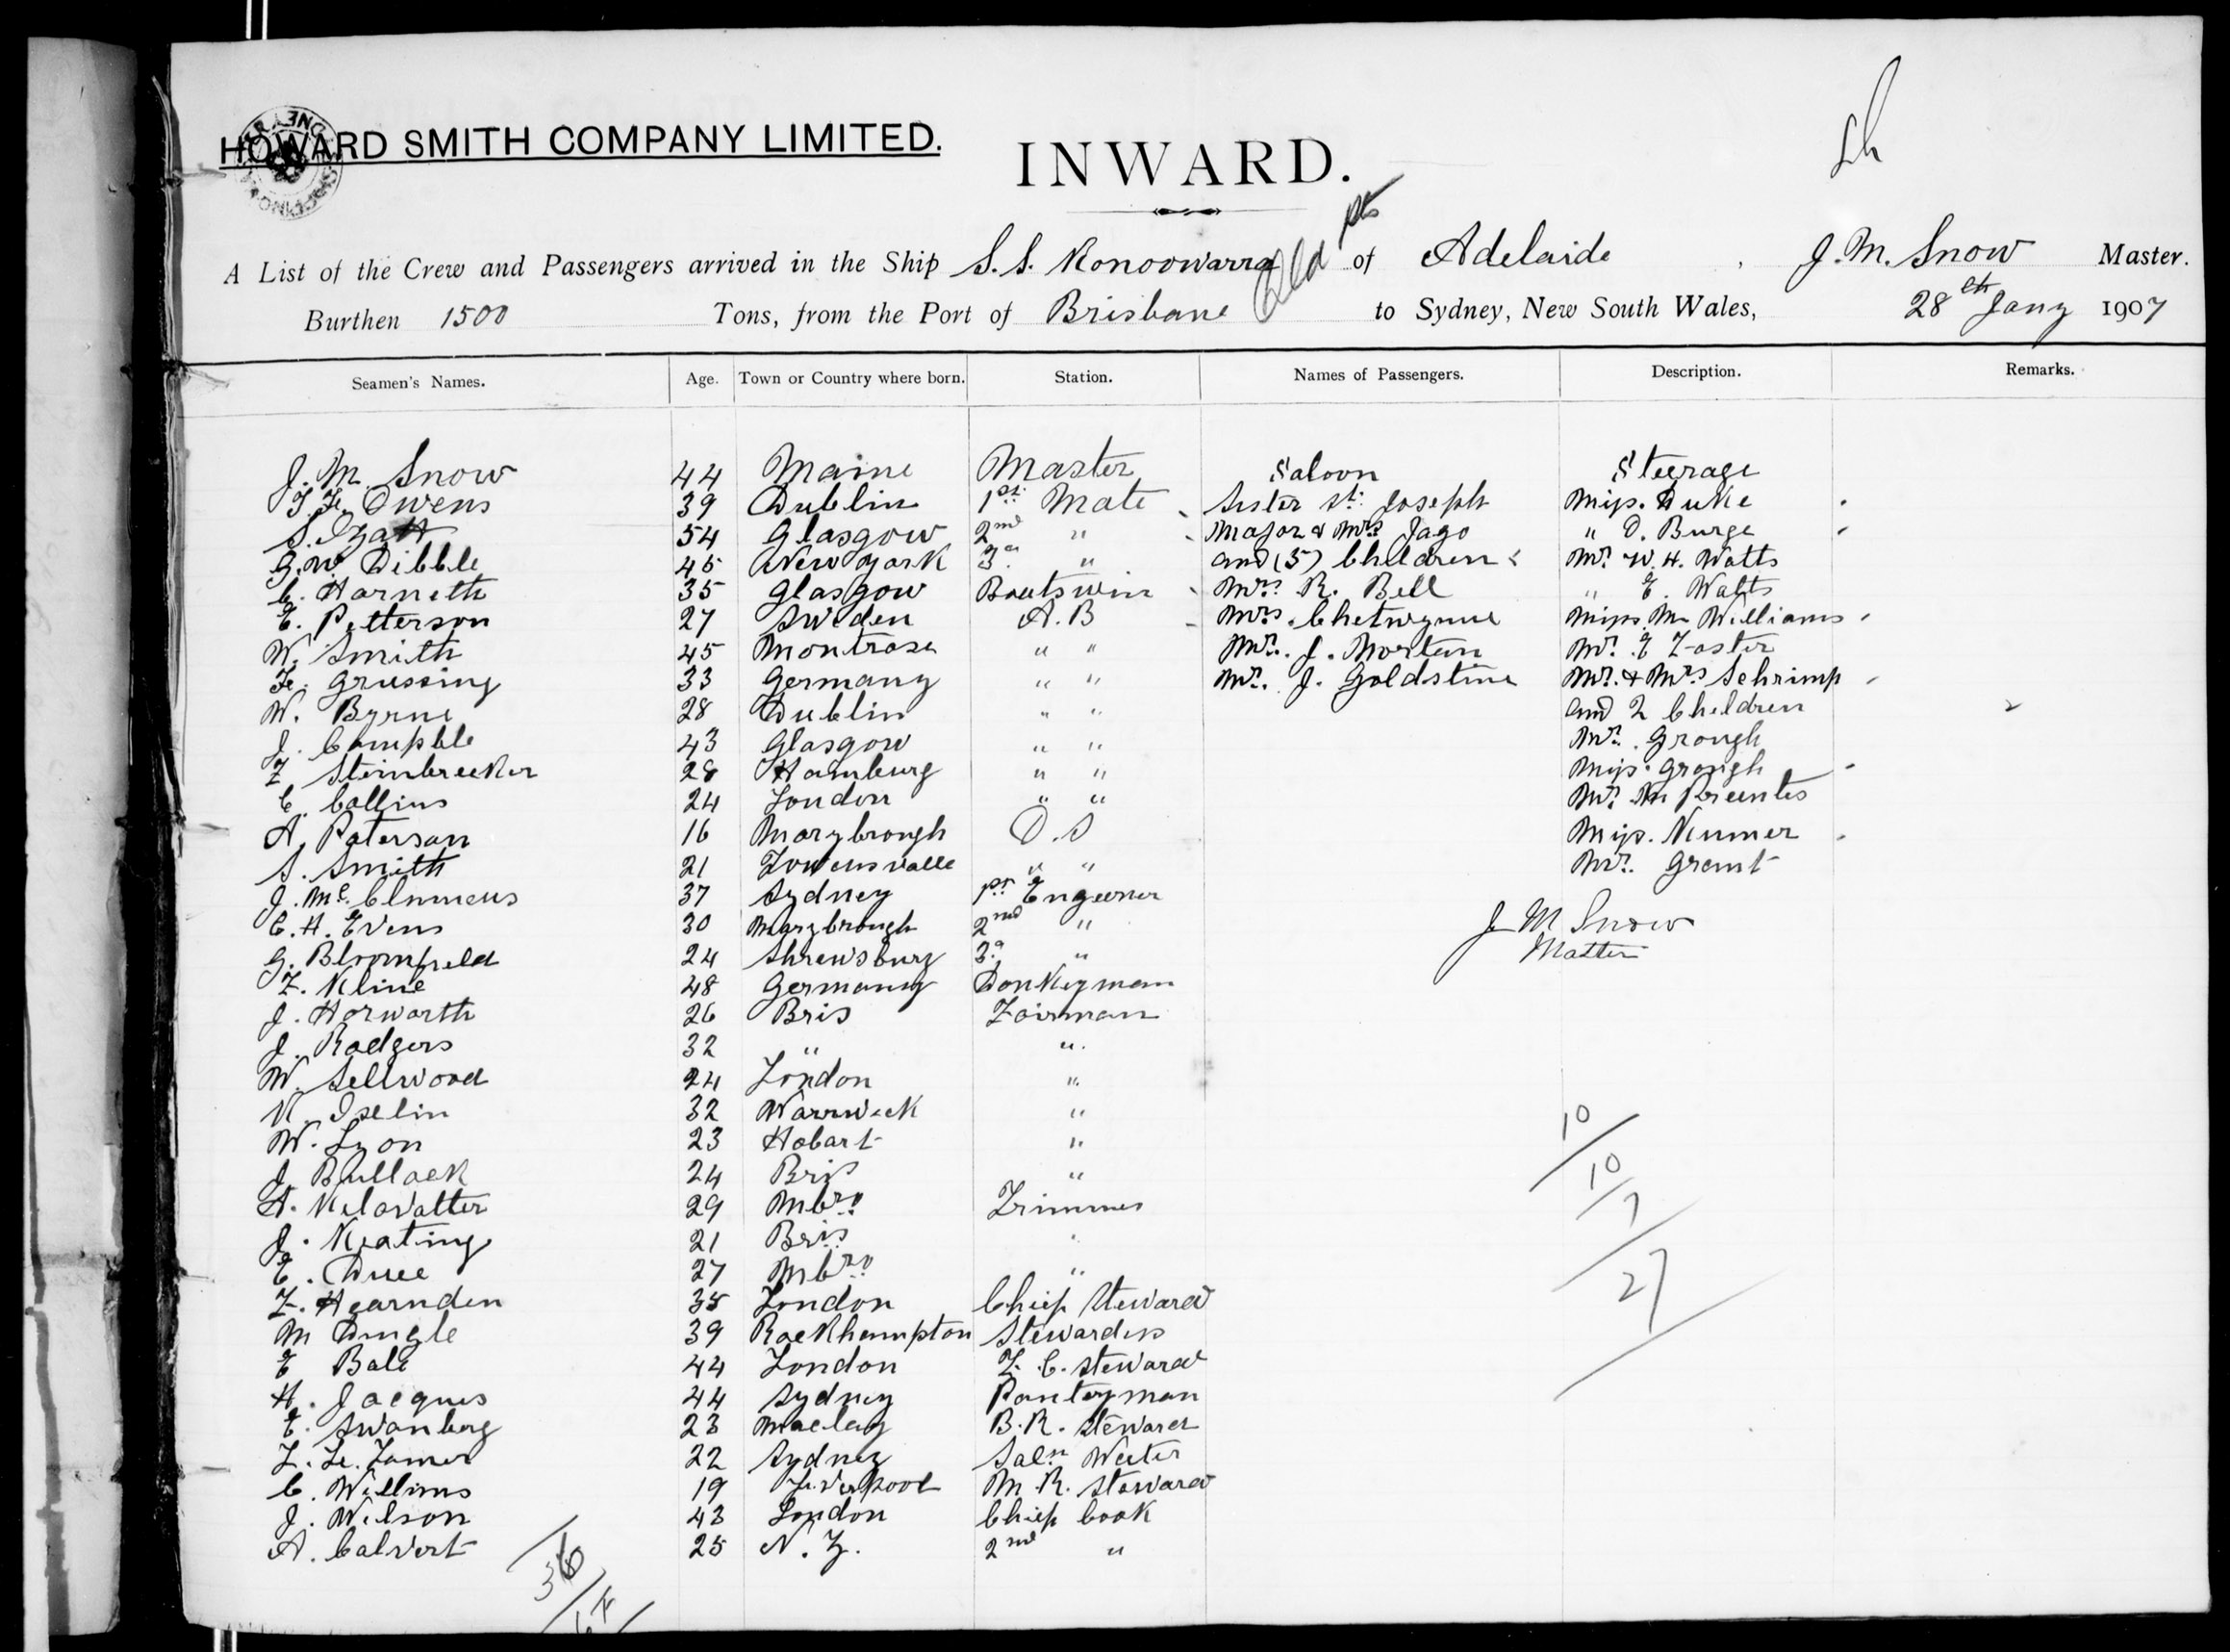 HOWARD SMITH COMPANY LIMITED.
INWARD.
A List of the Crew and Passengers arrived in the Ship S.S. Konoowarra of Adelaide, J. M. Snow Master.
Burthen 1500 Tons, from the Port of Brisbane Qld to Sydney, New South Wales, 28th Jany 1907
Seamen's Names. Age. Town or Country where born. Station. Names of Passengers. Description. Remarks.
J. M. Snow 44 Maine Master Saloon Steerage
Owens 39 Dublin 1st Mate Sister St. Joseph Miss. Duke
54 Glasgow 2nd " Major & Mrs Jago " D. Burge
G. W. Dibble 45 New York 3rd " and (5) Children Mr. W. H. Watts
C. Harneth 35 Glasgow Boutswin Mrs. R. Bell " E. Watts
E. Petterson 27 Sweden A. B Mrs. Chetwynne Miss. M. Williams
W. Smith 45 Montrose " " Mr. J. Morten Mr. E Foster
F. Grussing 33 Germany " " Mr. J. Goldstine Mr. & Mrs Schrimp
W. Byrne 28 Dublin " " and 2 Children
J. Campble 43 Glasgow " " Mr. Grough
F Steinbrecker 28 Hamburg " " Miss. Grough
C. Collins 24 London " " Mr. M
A. Paterson 16 Marybrough O. S Miss.
S. Smith 21 Townsvalle " " Mr. Grant
J. Mc. Clumeus 37 Sydney 1st Engeener
C. H. Evens 30 Marybrough 2nd "
J M Snow
G. Bloomfield 24 Shrewsbury 3rd "
Master
F. Kline 48 Germany Donkeyman
J. Horworth 26 Bris Foirman
J. Rodgers 32 " "
W. Sellwood 24 London "
K. Iselin 32 Warrwick "
W. Lyon 23 Hobart "
J. Bullock 24 Bris "
A. 29 Mbro Trimmer
J. Keating 21 Bris "
E. 27 Mbro "
F. Hearnden 35 London Chief Steward
M Dingle 39 Rockhampton Stewardess
E Bale 44 London F. C. Steward
H. Jacques 44 Sydney Pantryman
E. Swanberg 23 Macleay B. R. Steward
22 Sydney Saln Weiter
C. Willims 19 Liverpool M. R. Steward
J. Wilson 43 London Chief Cook
A. Calvert 25 N. Z. 2nd "
10
10
7
27
36